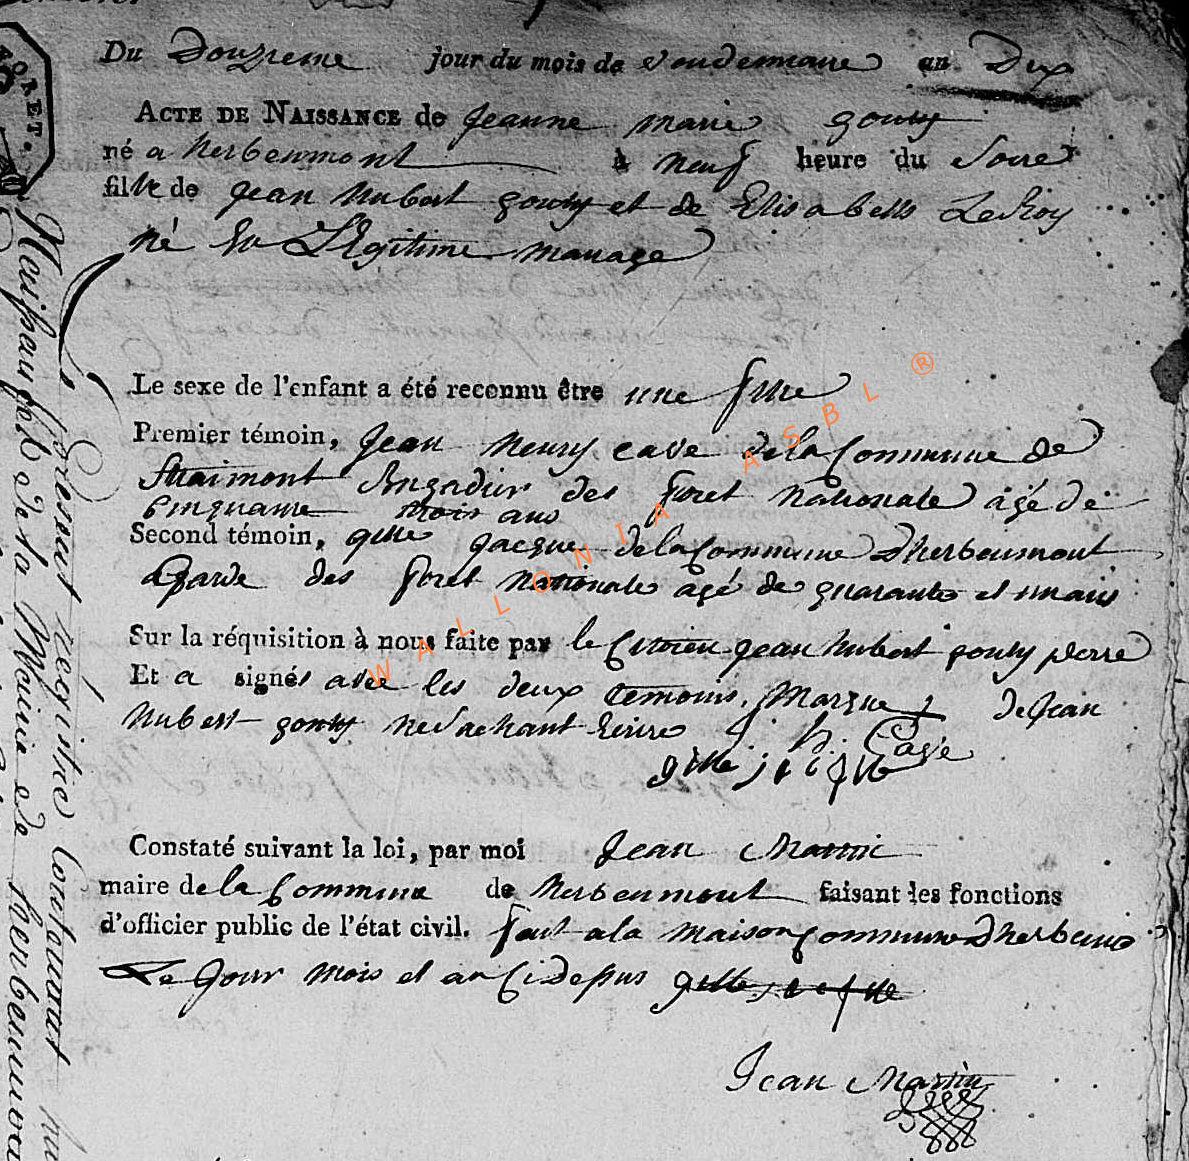 Du Douzieme jour du mois de Vendemiaire an Dix
ACTE DE NAISSANCE de Jeanne marie goury
né a herbeumont à neuf heure du Soire
fille de Jean hubert goury et de Elisabette LeRoy
né En LEgitime mariage
Le sexe de l'enfant a été reconnu être une fille
Premier témoin, Jean henry cave de la Commune de
Straimont Brigadier des foret nationale agé de
Cinquante trois ans
Second témoin, gille Jacque de la Commune Dherbeumont
Garde des foret Nationale agé de quarante et un ans
Sur la réquisition à nous faite par le Citoien jean hubert goury perre
Et a signés avec les deux temoins, Marque de Jean
hubert goury ne Sachant Ecrire h. Cave
gille
Constaté suivant la loi, par moi Jean Martin
maire de la Commune de herbeumont faisant les fonctions
d'officier public de l'état civil. fait a la maison Commune Dherbeumo
Le Jour mois et an Ci Desus gille
Jean Martin
present régistre Contenant
de la Mairie de herbeumon
WALLONIA ASBL ®
ORET.